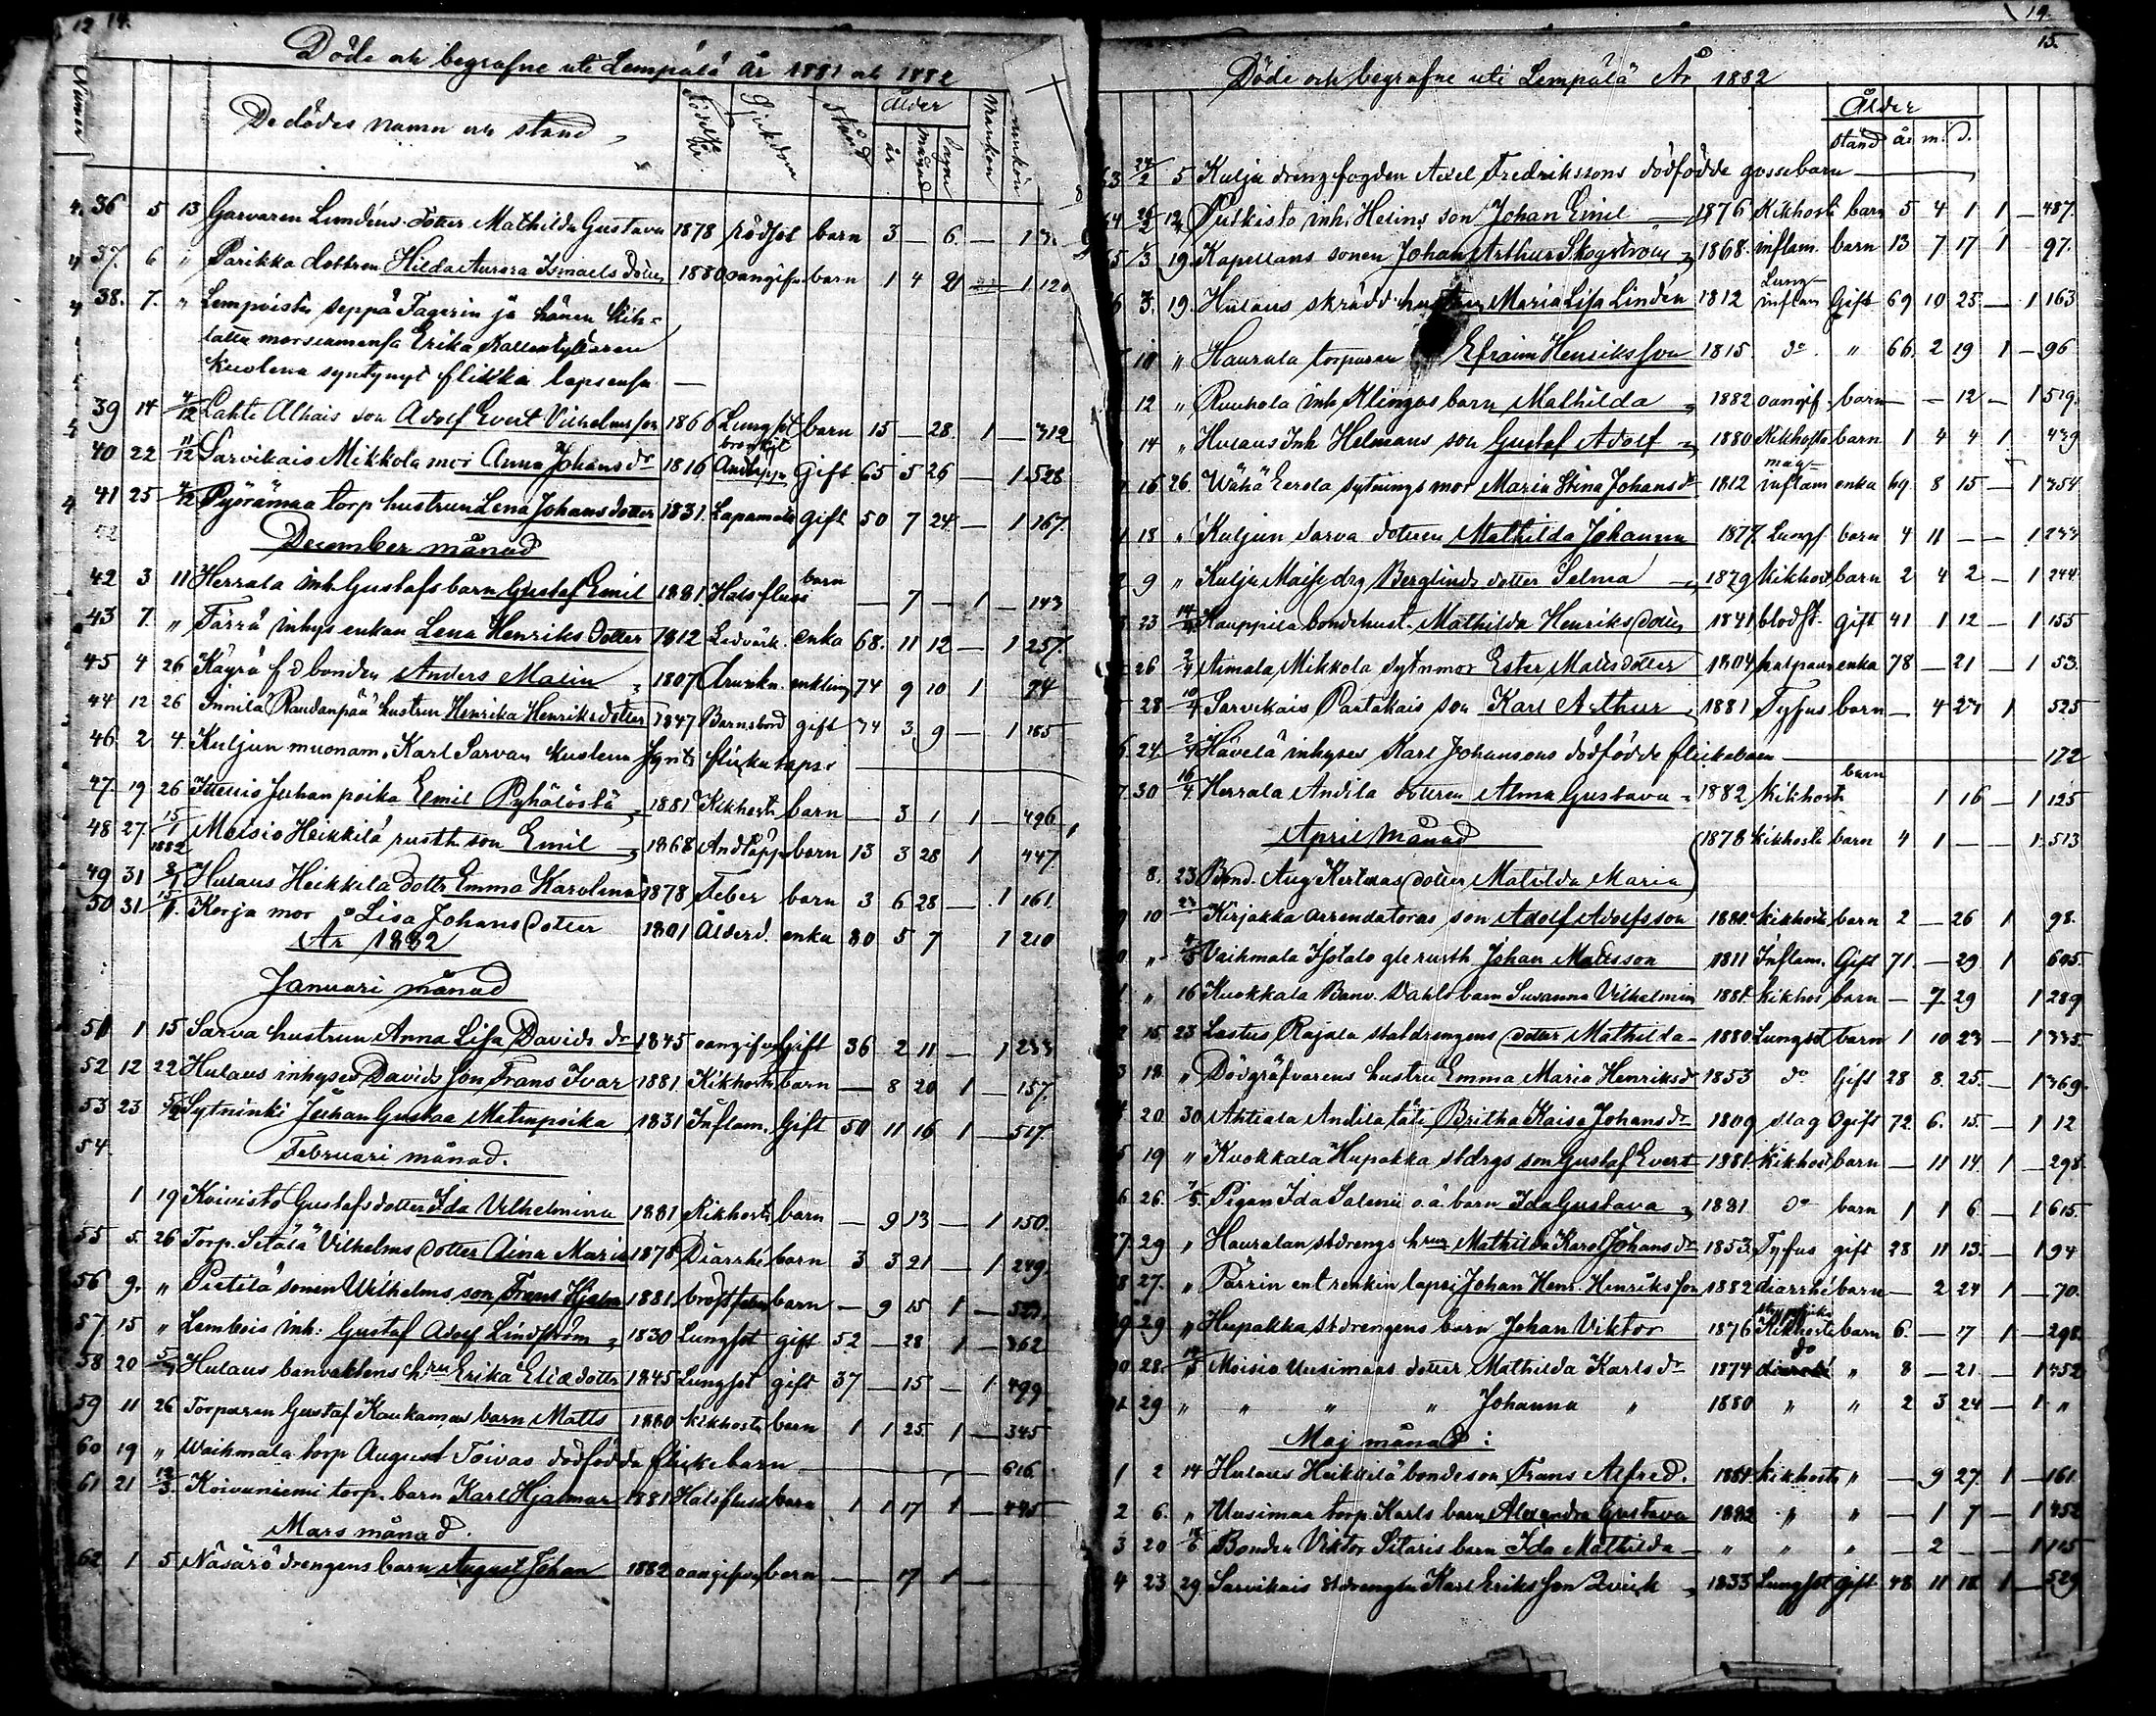 12 14.
Döde och begrafne uti Lempälä År 1881 och 1882
Numer De dödes namn och stånd Födelse år Sjukdom Stånd Ålder år månad dagar Mankön
36 5 13 Garvaren Lundéns dotter Mathilda Gustava 1878 Rödsot barn 3 — 6. — 1
37. 6 " Parikka dottren Hilda Aurora Ismaels dotter 1880 oangifv barn 1 4 21 — 1 120
38. 7. " Lempoisten seppä Fagerin ja hänen kih-
lattu morsiamensa Erika Kallentyttären
kuolena syntynyt flikka lapsensa —
39 14 4/12 Lahti Alhais son Adolf Evert Vilhelmsson 1866 Lungsot barn 15 — 28. 1 — 312
40 22 11/12 Sarvikais Mikkola mor Anna Johansdr 1816 bronkit Andtäppa Gift 65 5 26 — 1 528
41 25 4/12 Pyörämaa torp hustrun Lena Johansdotter 1831. Lapamato Gift 50 7 24. — 1 167.
December månad
42 3 11 Herrala inh. Gustafs barn Gustaf Emil 1881. Halsfluss barn — 7 — 1 — 143
43 7. " Färrä inhys enkan Lena Henriks dotter 1812 Ledvärk. enka 68. 11 12 — 1 257.
45 4 26 Käyrä f.d bonden Anders Malin 1807 enkling 74 9 10 1 74
44 12 26 Innilä Raudanpää hustrun Henrika Henriksdotter 1847 Barnsbörd gift 34 3 9 — 1 185
46. 2 4. Kuljun muonam. Karl Sarvan kuolena synt: flikka laps:
47. 19 26 Juhan poika Emil Pyhälöstä 1881 Kikhosta barn — 3 1 1 — 496
48 27. 15/1 1882 Moisio Heikkilä rusth. son Emil 1868 Andtäpp barn 13 3 28 1 447.
49 31 Hulaus Heikkilä dottr Emma Karolina 1878 Feber barn 3 6 28 — 1 161
50 31 15/1. Korja mor Lisa Johans dotter 1801 Ålderd. enka 80 5 7 1 210
År 1882
Januari månad
51 1 15 Sarva hustrun Anna Lisa Davids dr 1845 oangifvet Gift 36 2 11 — 1 233
52 12 22 Hulaus inhyses Davids son Frans Ivar 1881 Kikhosta barn — 8 20 1 — 157.
53 23 5/2 Sytninki Juhan Gustaa Matinpoika 1831 Inflam. Gift 50 11 16 1 — 517.
54 Februari månad.
1 19 Koivisto Gustafs dotter Ida Vilhelmina 1881 Kikhosta barn — 9 13 — 1 150.
55 5. 26 Torp. Setälä Vilhelms dotter Aina Maria 1878 Diarrhé barn 3 3 21 — 1 249
56 9. " Pietilä sonen Wilhelms son Frans Hjalm 1881. bröstfeber barn — 9 15 1 — 523
57 15 " Lembois inh: Gustaf Adolf Lindström 1830 Lungsot gift 52 — 28 1 — 362
58 20 5/3 Hulaus banvaktens hru Erika Elias dotter 1845 Lungsot gift 37 — 15 — 1 499
59 11 26 Torparen Gustaf Kaukamas barn Matts 1880 kikhosta barn 1 1 25. 1 — 345
60 19 " Waihmala torp August Toivos dödfödda flickebarn — 616.
61 21 12/3. Koivuniemi torp. barn Karl Hjalmar 1881 Halsfluss barn 1 1 17 1 — 495
Mars månad.
62 1 5 Näsärö drengens barn August Johan 1882 oangifvet barn — 17 1 —
14.
15.
Döde och begrafne uti Lempälä År 1882
Ålder
stånd år m. d.
63 24/2 5 Kulju drengfogden Axel Fredrikssons dödfödde gossebarn
64 26/2 12 Putkisto inh. Heims son Johan Emil 1876 Kikhosta barn 5 4 1 1 — 487.
65 1/3 19. Kapellans sonen Johan Arthur Skogström 1868. inflam. barn 13 7 17 1 97.
6 3. 19. Hulaus skrädd hustrun Maria Lisa Lindén 1812 Lung-inflam Gift 69 10 25 — 1 163
10 " Haurala torparen Efraim Henriksson 1815 do " 66. 2 19 1 — 96
12 " Ruuhola inh Klingas barn Mathilda 1882 oangif. barn — — 12 — 1 519.
14 " Hulaus Inh Helmans son Gustaf Adolf 1880 Kikhosta barn 1 4 4 1 439
16 26. Wähä Eerola sytnings mor Maria Stina Johansdr 1812 mag-inflam enka 69 8 15 — 1 354
18 " Kuljun Sarva dottren Mathilda Johanna 1877. Lungs. barn 4 11 — — 1 233
9 " Kulju Maisj drg Berglinds dotter Selma 1879 kikhost barn 2 4 2 — 1 244
23 14/4 Kauppila bondehust. Mathilda Henriks dotter 1841 blodst. gift 41 1 12 — 1 155
26 2/4 Aimala Mikkola sytnmor Ester Mattsdotter 1804 enka 78 — 21 — 1 53.
28 10/4 Sarvikais Pastakais son Karl Arthur 1881 Tyfus barn — 4 27 1 525
6. 24. 2/4 Hävelä inhyses Karl Johansons dödfödde flickebarn — 172
7. 30 16/4. Herrala Andila dottren Alma Gustava 1882 kikhosta barn 1 16 — 1 125
April månad
8. 23 Bond. Aug Kertuas dotter Matilda Maria 1878 kikhosta barn 4 1 — — 1 513
9 10 23 Kirjakka arrendatoras son Adolf Adolfsson 1880. kikhosta barn 2 — 26 1 98.
" Vaihmala Isotalo gle rusth. Johan Mattsson 1811 Inflam. Gift 71. — 29 1 605.
1 " 16 Kuokkala Banv. Dahls barn Susanna Vilhelmin 1881. kikhos barn — 7 29 1 289
2 15 23 Lastus Rajala staldrengens dotter Mathilda 1880 Lungsot barn 1 10 23 — 1 335.
3 18 " Dödgräfvarens hustru Emma Maria Henriksdr 1853 do Gift 28 8. 25. — 1 369.
4. 20. 30 Ahtiala Andila täti Britha Kaisa Johansdr 1809 slag Ogift 72 6. 15. — 1 12
5 19 " Kuokkala Hupakka stdrgs son Gustaf Evert 1881. kikhost barn — 11 14 1 — 298.
6 26. 7/5. Pigan Ida Salenii o.ä barn Ida Gustava 1881 do barn 1 1 6. — 1 615.
7. 29 " Hauralan stdrengs hrun Mathilda Karol Johansdr 1853. Tyfus gift 28 11 13. — 1 94
8 27. " Pärrin ent renkin lapsi Johan Henr. Henriksson 1882 diarrhé barn — 2 24 1 — 70.
9 29 " Hupakka stdrengens barn Johan Viktor 1876 Kikhosta barn 6. — 17 1 — 298
90 28. 14/5 Moisio Uusimaas dotter Mathilda Karlsdr 1874 do " 8 — 21. — 1 452
91 29 " " " " Johanna " 1880 " " 2 3 24 — 1 "
Maj månad:
1 2 14 Hulaus Heikkilä bondeson Frans Alfred. 1881 kikhosta " — 9 27. 1 — 161
2 6. " Uusimaa torp. Karls barn Alexandra Gustava 1882 " " — 1 7 — 1 452
3 20 18/6 Bonden Viktor Sitaris barn Ida Mathilda " " " — 2 — — 1 115
4 23 29 Sarvikais stdrengen Karl Eriksson Qvick 1833 Lungsot gift 48 11 18 1 — 529